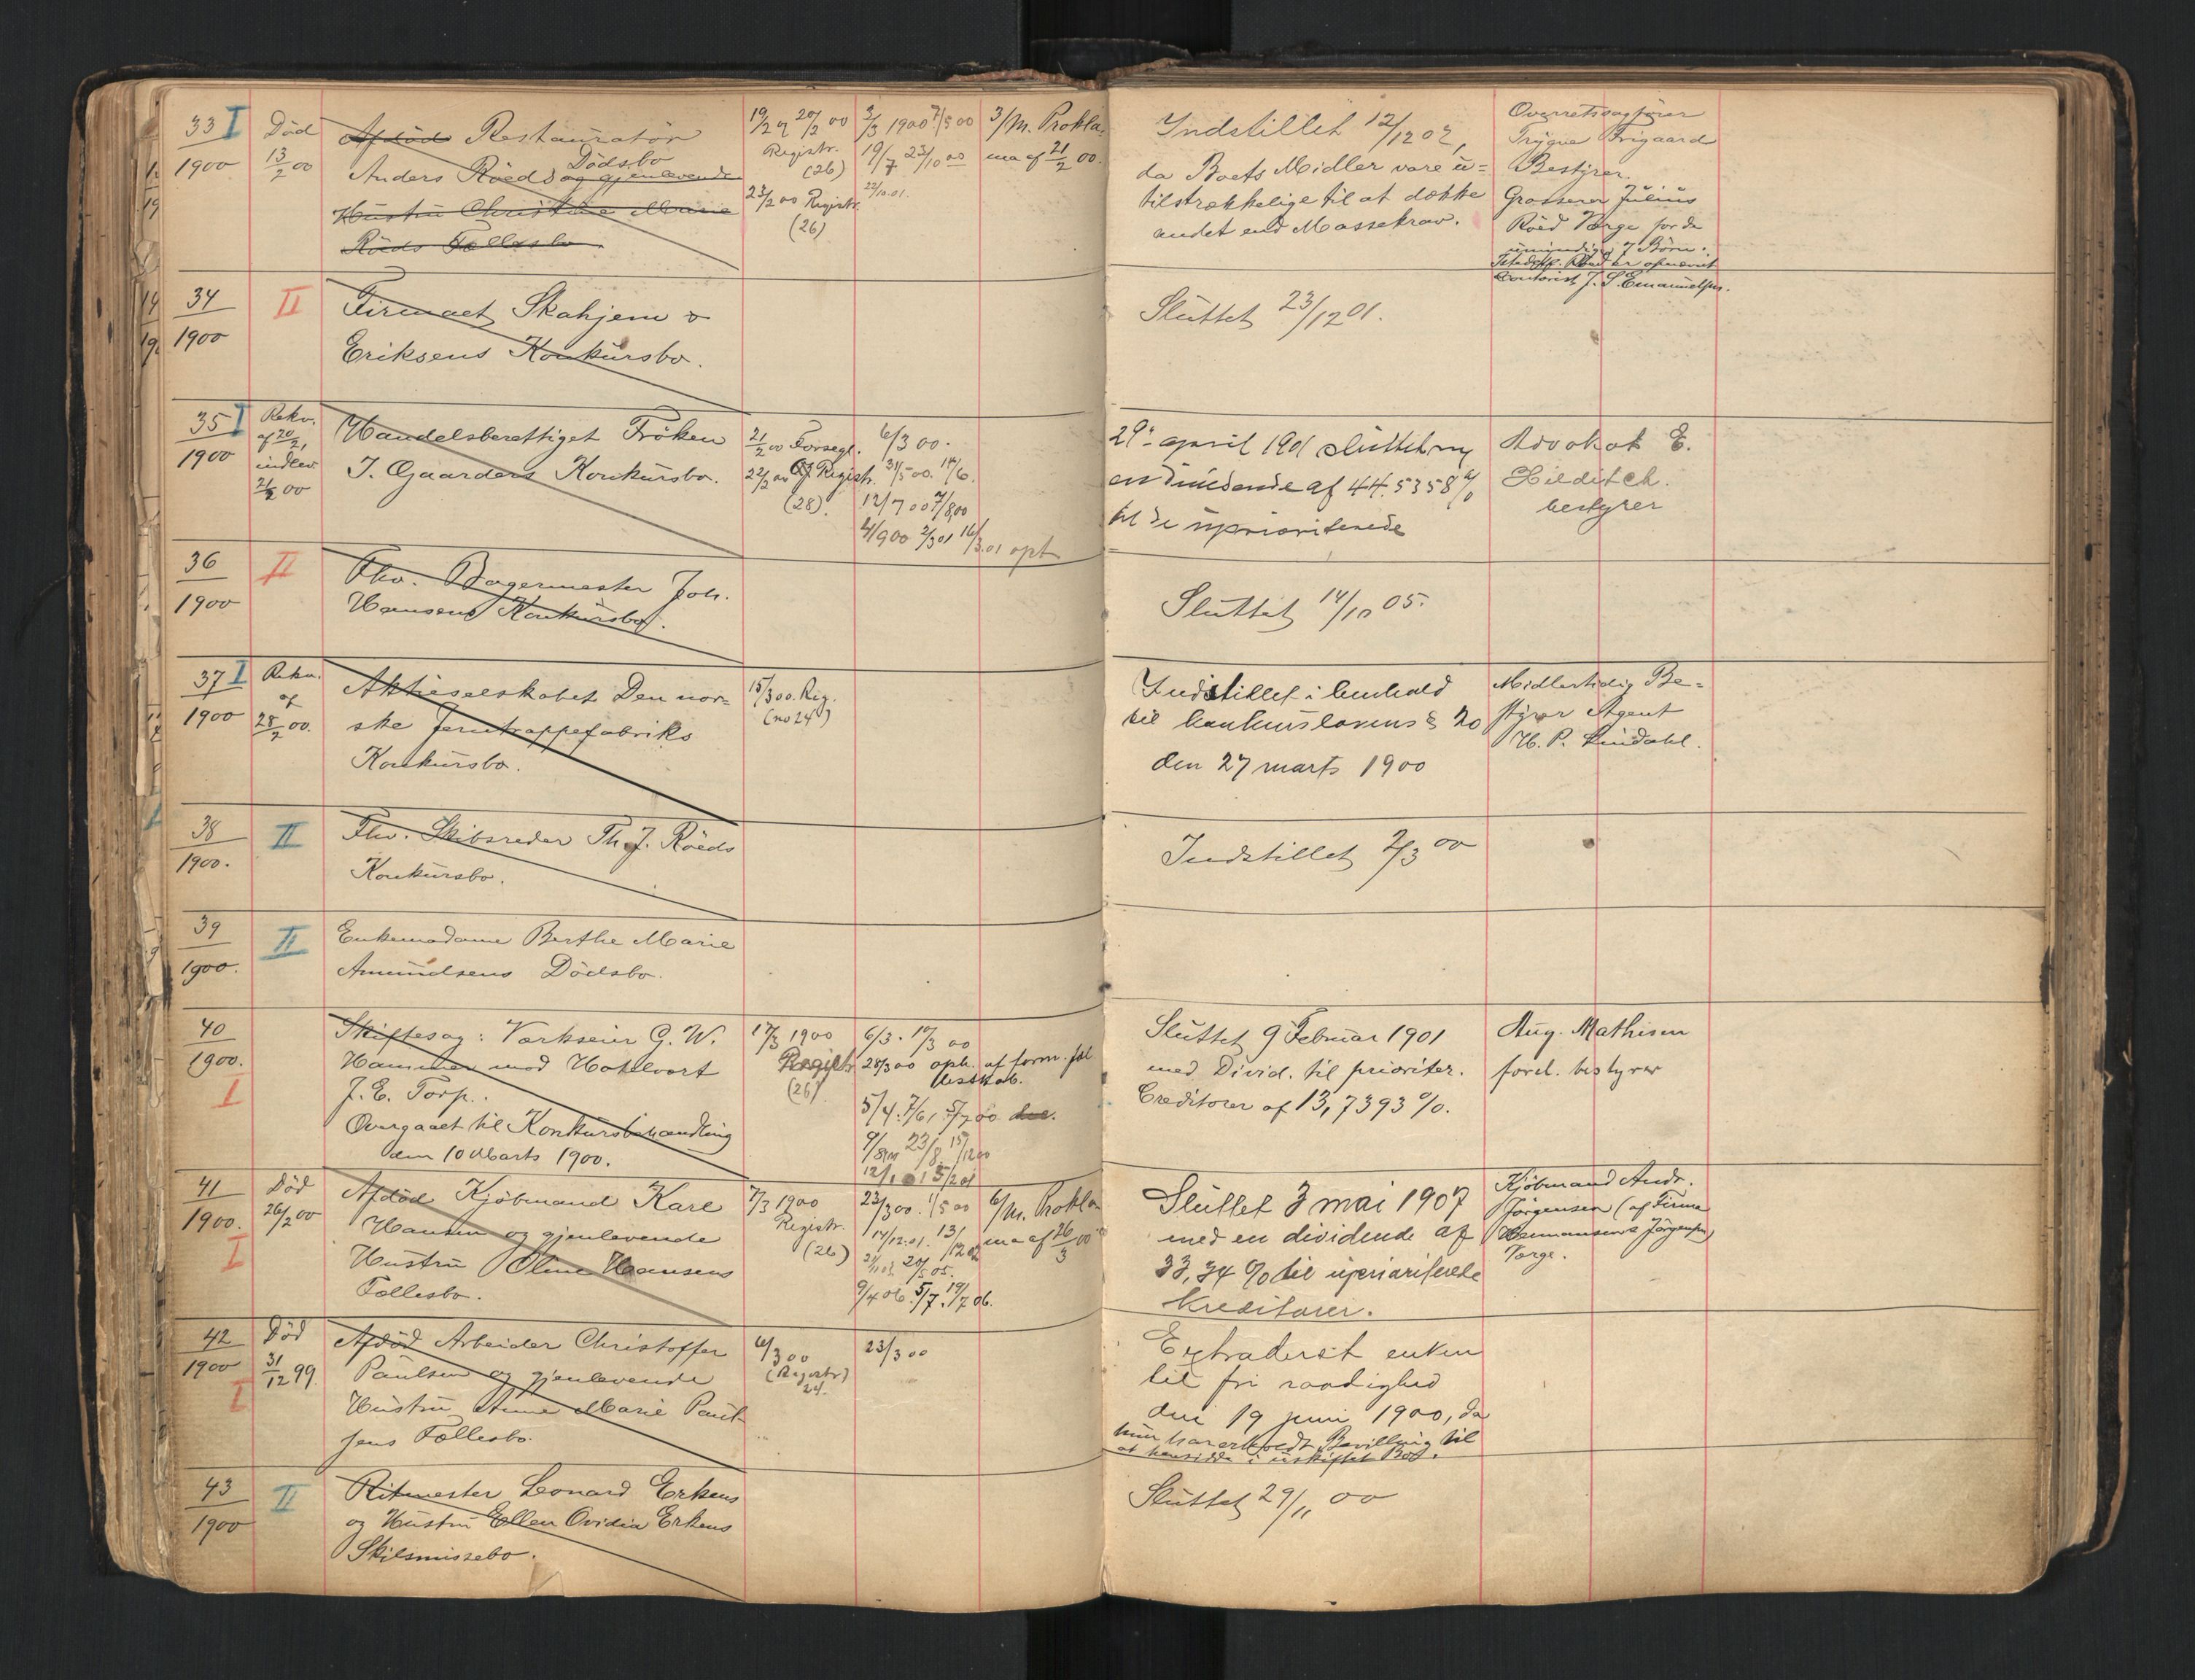 33 I
1900
Död
13/2 00
Afdöd Restauratör
Dödsbo
Anders Röeds og gjenlevende
Hustru Christine Marie
Röeds Fællesbo
19/2 og 20/2 00
Registr.
(26)
23/2 00 Registr.
(26)
2/3 1900 7/5 00
19/7 23/10 00
22/10.01.
3/m. Prokla-
ma af 21/2 00.
Indstillet 12/12 02,
da Boets Midler vare u-
tilstrækkelige til at dække
andet end Massekrav.
Overretssagfører
Trygve Frigaard
Bestyrer.
Grosserer Julius
Röed Værge for de
umyndige 7 Börn.
Kontorist J. S. Emanuelsen.
34
1900
II
Firmaet Skahjem &
Eriksens Konkursbo.
Sluttet 23/12 01.
35 I
1900
Rekv.
af 20/2,
indlev
21/2 00
Handelsberettiget Fröken
J. Gaarders Konkursbo.
21/2 00 Forsegl.
22/2 00 Registr.
(28).
6/3 00.
31/5 00. 14/6.
12/7 00 7/8 00
4/9 00 2/3 01 16/3.01 opt
29de april 1901 sluttet m
en dividende af 44.5358 %
til de uprioriterede
Advokat E.
Hilditch.
bestyrer
36
1900
II
Fhv. Bagermester Joh.
Hansens Konkursbo.
Sluttet 14/10 05.
37 I
1900
Rekv.
af
28/2 00.
Aktieselskabet Den nor-
ske Jerntrappefabriks
Konkursbo.
15/3 00. Reg.
(no 24)
Indstillet i henhold
til konkurslovens § 20
den 27 marts 1900
Midlertidig Be-
styrer Agent
H. P. Lindahl.
38
1900.
II
Fhv. Skibsreder Th. J. Röeds
Konkursbo.
Indstillet 2/3 00
39
1900.
II
Enkemadame Berthe Marie
Amundsens Dödsbo.
40
1900.
I
Skiftesag: Værkseier G. W.
Hammer mod Hotelvært
J. E. Torp.
Overgaaet til Konkursbehandling
den 10 Marts 1900.
17/3 1900
Registr
(26)
6/3. 10/3 00
28/3 00 oph. af form.
5/4. 7/6, 5/7 00
23/8
Sluttet 9 Februar 1901
med Divid. til prioriter.
Creditorer af 13,7393 %.
Aug. Mathisen
forel. bestyrer
41
1900.
I
Död
26/2 00
Afdöd Kjöbmand Karl
Hansen og gjenlevende
Hustru Oline Hansens
Fællesbo.
7/3 1900
Registr.
(26)
23/3 00. 1/5 00
14/12.01.
9/4 06. 5/7. 19/7 06.
6/m. Prokla-
ma af 26/3 00
Sluttet 3 mai 1907
med en dividende af
33,34 % til uprioriterede
kreditorer.
Kjöbmand Andr.
Jörgensen (af Firma
Hermansen & Jörgensen)
Værge.
42
1900
I
Död
31/12 99
Afdöd Arbeider Christoffer
Paulsen og gjenlevende
Hustru Anne Marie Paul-
sens Fællesbo.
6/3 00
(Registr)
24.
23/3 00
Extraderet enken
til fri raadighed
den 19 juni 1900, da
hun har erholdt Bevilling til
at hensidde i uskiftet Bo.
43
1900
II
Ritmester Leonard Erkens
og Hustru Ellen Ovidia Erkens
Skilsmissebo.
Sluttet 29/11 00